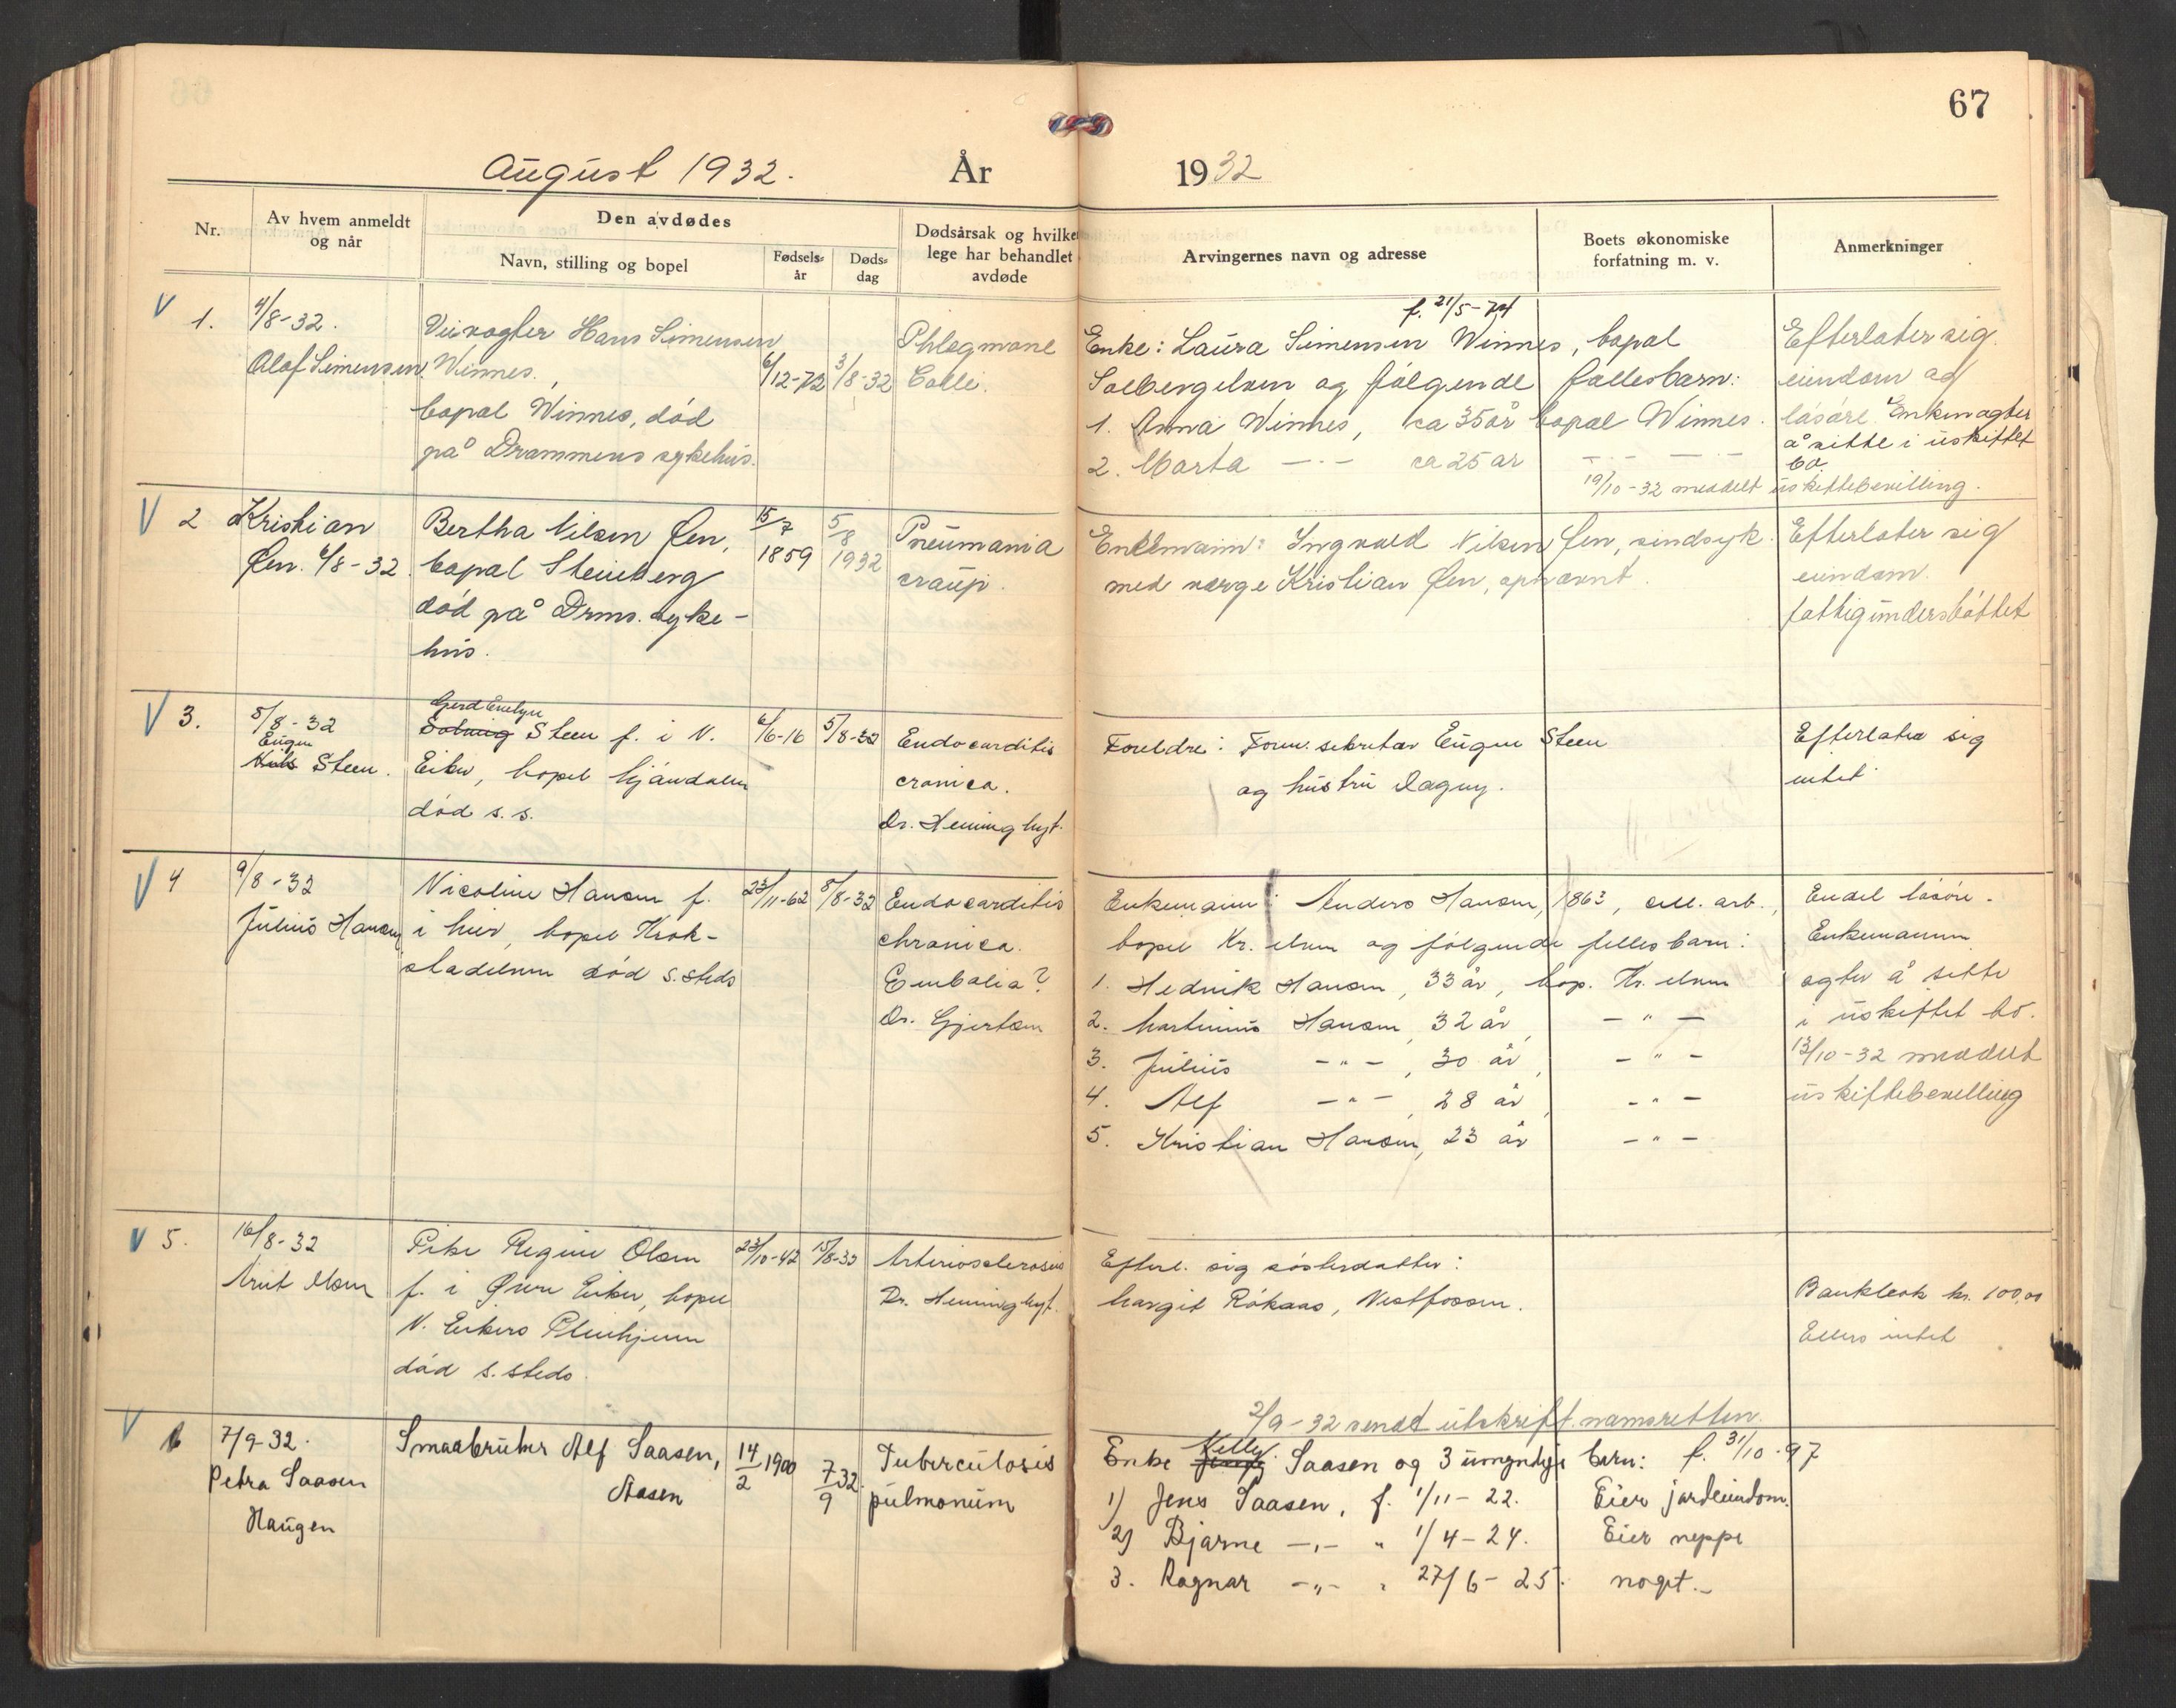 67
August 1932. År 1932
Nr.
Av hvem anmeldt
og når
Den avdødes
Navn, stilling og bopel
Fødsels-
år
Døds-
dag
Dødsårsak og hvilken
lege har behandlet
avdøde
Arvingernes navn og adresse
Boets økonomiske
forfatning m. v.
Anmerkninger
V 1.
4/8-32.
Olaf Simensen
Veivogter Hans Simensen
Winnes.
bopal Winnes, död
på Drammens sykehus.
6/12-72
3/8-32
Phlegmone
Colli.
f. 21/5-74
Enke: Laura Simensen Winnes, bopal
Solbergelven og følgende fællesbarn:
1. Anna Winnes, ca 35 år bopæl Winnes.
2. Marta -"- ca 25 år -"- -"-
19/10-32 meddelt uskiftebevilling.
Efterlater sig
eiendom og
lösöre. Enken agter
å sitte i uskiftet
bo
V 2
Kristian
Øen. 6/8-32.
Bertha Nilsen Øen,
bopal Steinberg
död på Drms. syke-
hus.
15/7
1859
5/8
1932
Pneumonia
croup.
Enkemann: Ingvald Nilsen Øen, sindsyk
med verge Kristian Øen, opnævnt.
Efterlater sig
eiendom.
fattigunderstöttet
V 3.
8/8-32
Eugen
Steen.
Gerd Evelyn
Solveig Steen f. i N.
Eiker, bopel Mjöndalen
död s. s.
6/6-16
5/8-32
Endocarditis
cronica.
Dr. Heming hyt.
Foreldre: Form. sekretær Eugen Steen
og hustru Dagny.
Efterlater sig
intet
V 4
9/8-32
Julius Hansen
Nicoline Hansen f.
i Lier, bopel Krok-
stadelven död s. steds
23/11-62
8/8-32
Endocarditis
chronica.
Embolia?
Dr. Gjertsen
Enkemann: Anders Hansen, 1863, cell. arb.,
bopel Kr. elven og følgende felles barn:
1. Hedvik Hansen, 33 år, bop. Kr. elven
2. Martinius Hansen, 32 år, - " -
3. Julius - " -, 30 år, - " -
4. Alf - " -, 28 år, - " -
5. Kristian Hansen, 23 år - " -
Endel lösöre.
Enkemannen
agter å sitte
i uskiftet bo.
13/10-32 meddelt
uskiftebevilling
V 5.
16/8-32
Arnt Olsen
Pike Regine Olsen
f. i Øvre Eiker, bopel
N. Eikers Pleiehjem
död s. steds
23/10-42
15/8-32
Arteriosclerosis
Dr. Heming hyt.
Efterl. sig søsterdatter:
Margit Rökaas, Vestfossen.
Bankbok kr. 100,00
Ellers intet
2/9-32 sendt utskrift namsretten.
V 6
7/9-32.
Petra Saasen
Haugen
Smaabruker Alf Saasen,
Aasen
14/2 1900
7/9 32
Tuberculosis
pulmonum
Kelly
Enke Saasen og 3 umyndige barn: f. 31/10-97
1) Jens Saasen, f. 1/11-22.
2) Bjarne -"- " 1/4-24.
3. Ragnar -"- " 27/6-25.
Eier jordeiendom.
Eier neppe
noget.-